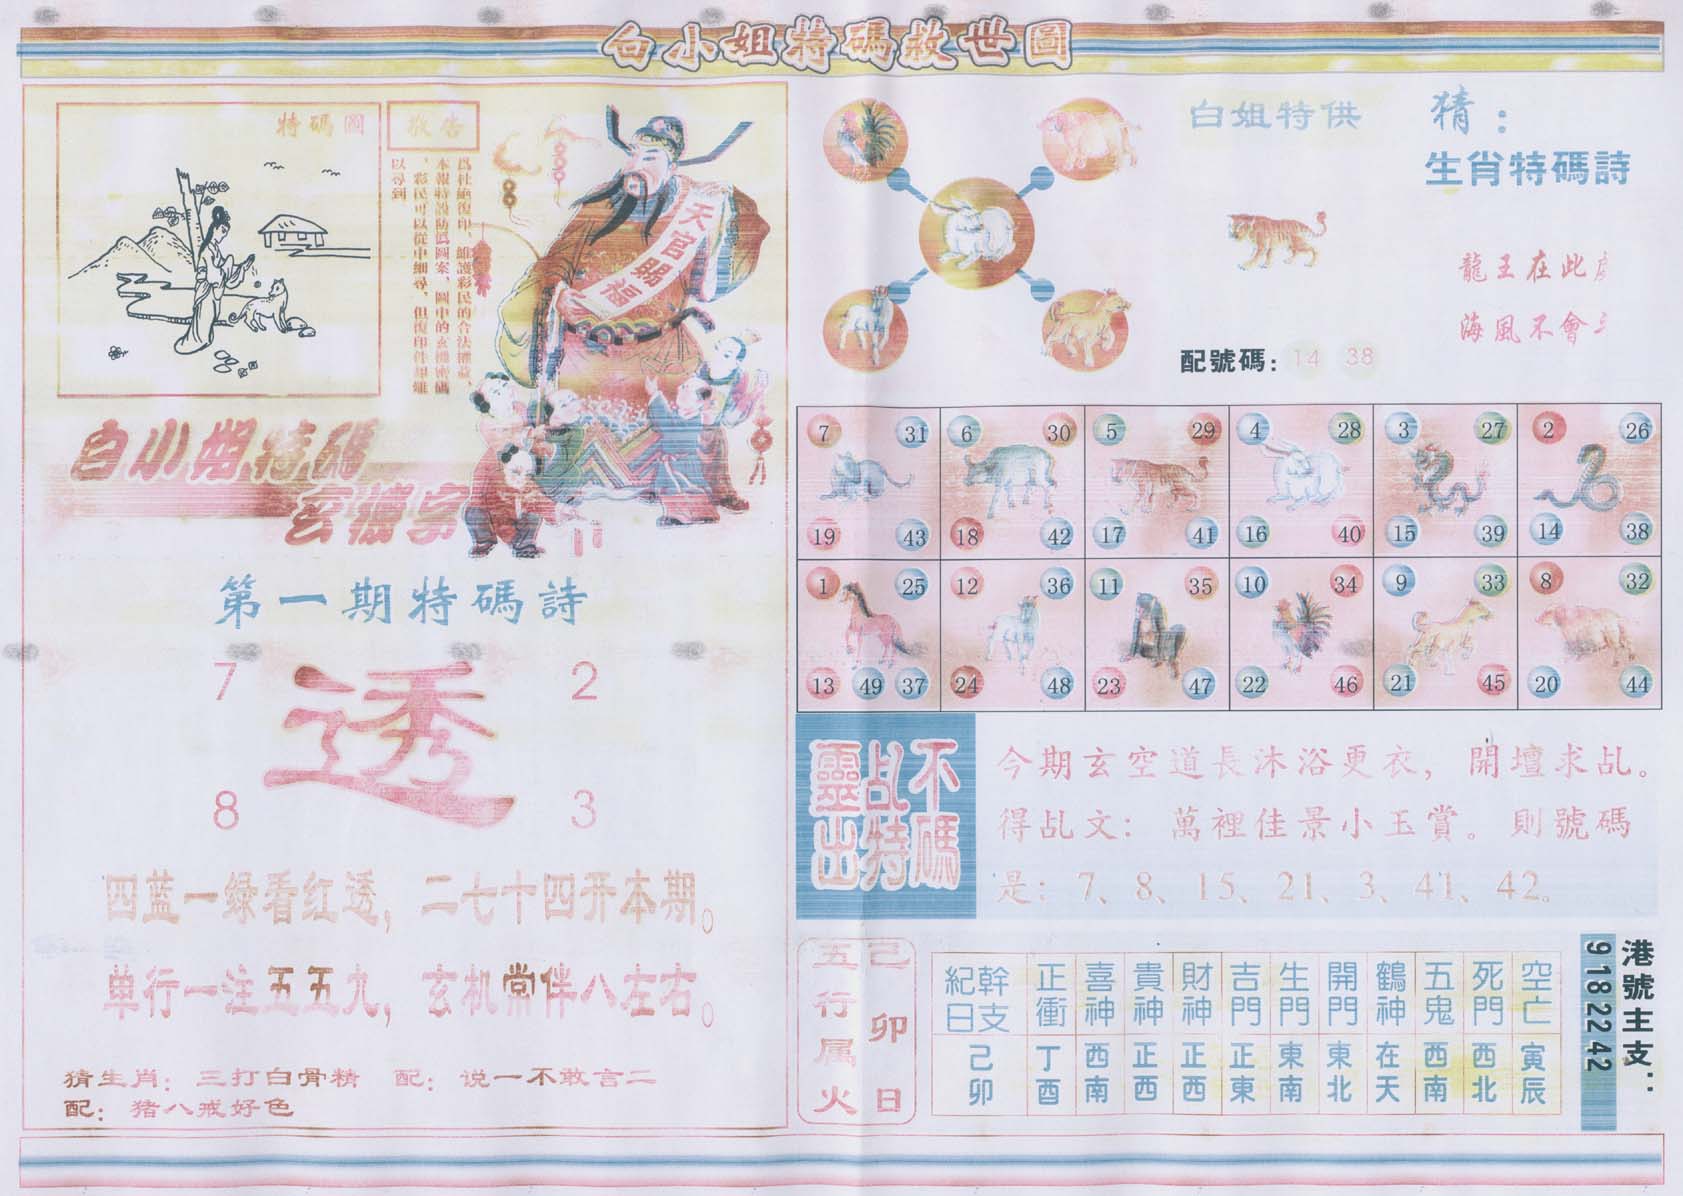 白小姐特碼救世圖
特碼圖
敬告
爲杜絶復印、維護彩民的合法權益，
本報特設防僞圖案，圖中的玄機密碼
，彩民可以從中細尋，但復印件却難
以尋到
天官賜福
白小姐特碼
玄機字
第一期特碼詩
7 2
透
8 3
四蓝一绿看红透，二七十四开本期。
单行一注五五九，玄机常伴八左右。
猜生肖：三打白骨精 配：说一不敢言二
配：猪八戒好色
白姐特供
猜：
生肖特碼詩
龍王在此
海風不會
配號碼：14 38
7 31 6 30 5 29 4 28 3 27 2 26
19 43 18 42 17 41 16 40 15 39 14 38
1 25 12 36 11 35 10 34 9 33 8 32
13 49 37 24 48 23 47 22 46 21 45 20 44
不碼
乩特
靈出
今期玄空道長沐浴更衣，開壇求乩。
得乩文：萬裡佳景小玉賞。則號碼
是：7、8、15、21、3、41、42。
己卯日
五行属火
紀日 幹支 正衝 喜神 貴神 財神 吉門 生門 開門 鶴神 五鬼 死門 空亡
己卯 丁酉 西南 正西 正西 正東 東南 東北 在天 西南 西北 寅辰
港號主支：
9 18 22 42